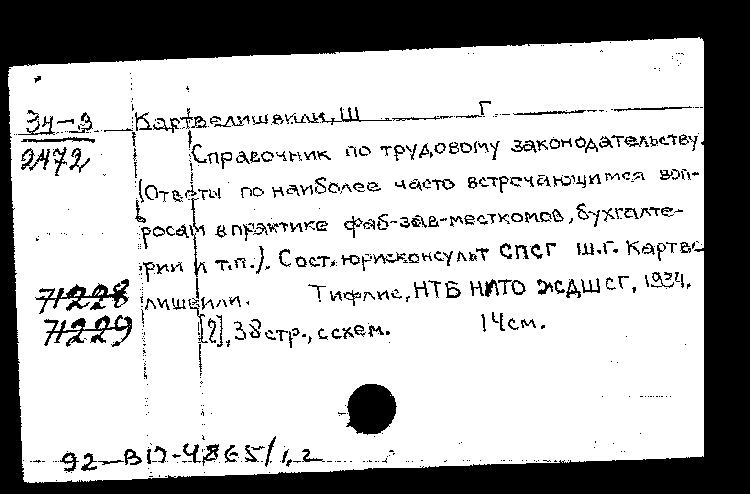 34-3 Картвелишвили, Ш Г
2472 Справочник по трудовому законодательству.
(Ответы по наиболее часто встречающимся воп-
росам в практике фаб-зав-месткомов, бухгалте-
рии и т.п.). Сост. юрисконсульт СПСГ Ш.Г. Картве
71228 лишвили. Тифлис, НТБ НИТО ЖСДШСГ, 1934.
71229 [2], 38 стр., с схем. 14 см.
92-ВП-4865/1,2